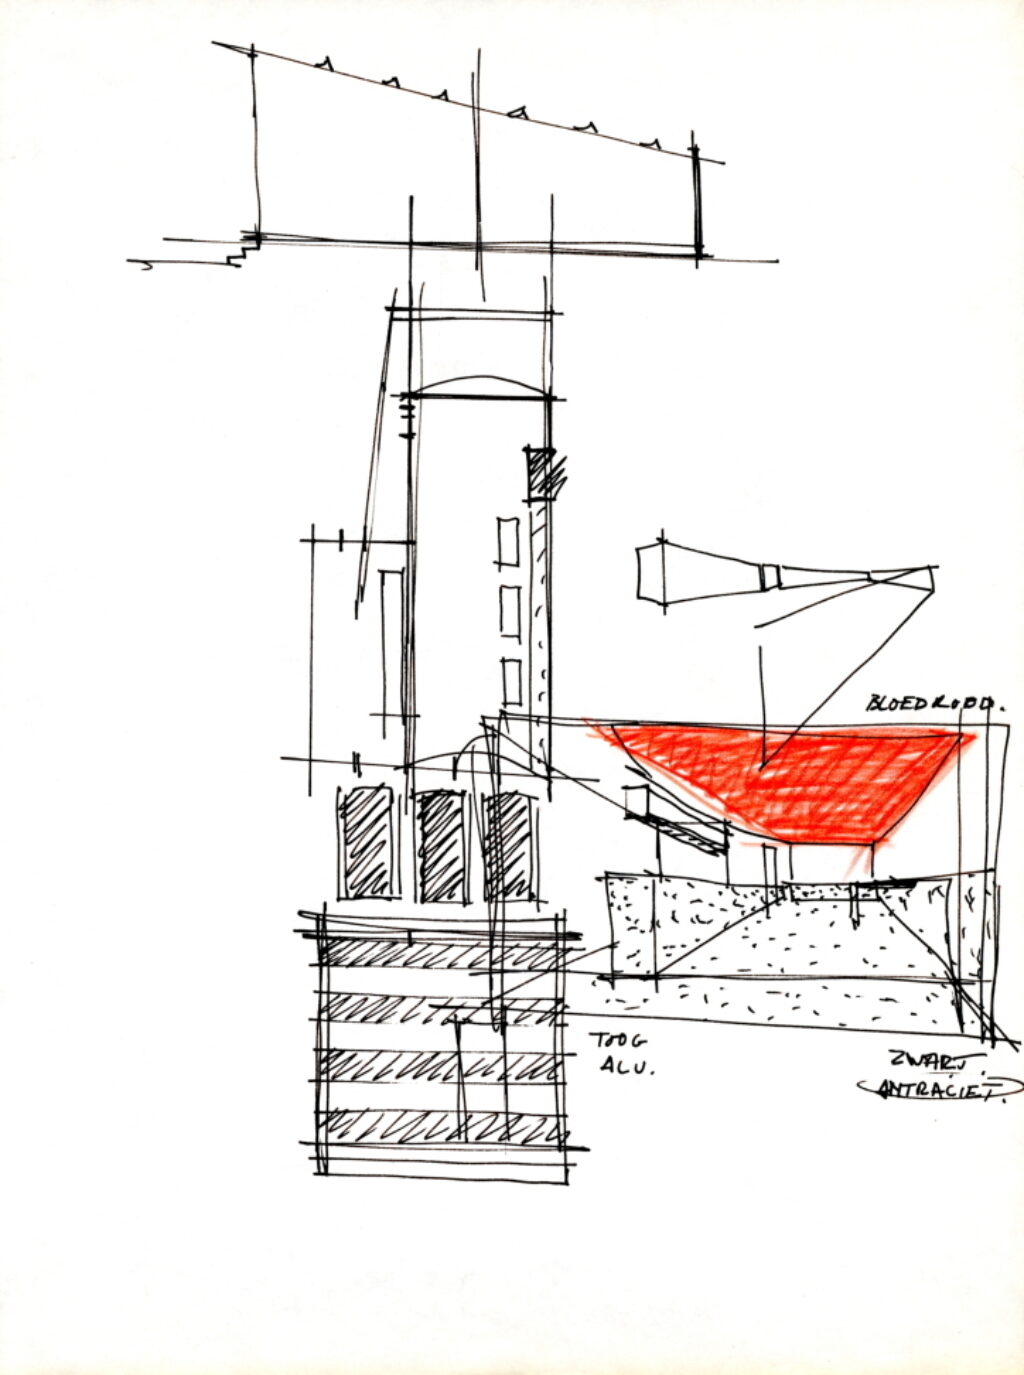 BLOEDROOD.
TOOG
ALU.
ZWART.
ANTRACIET.